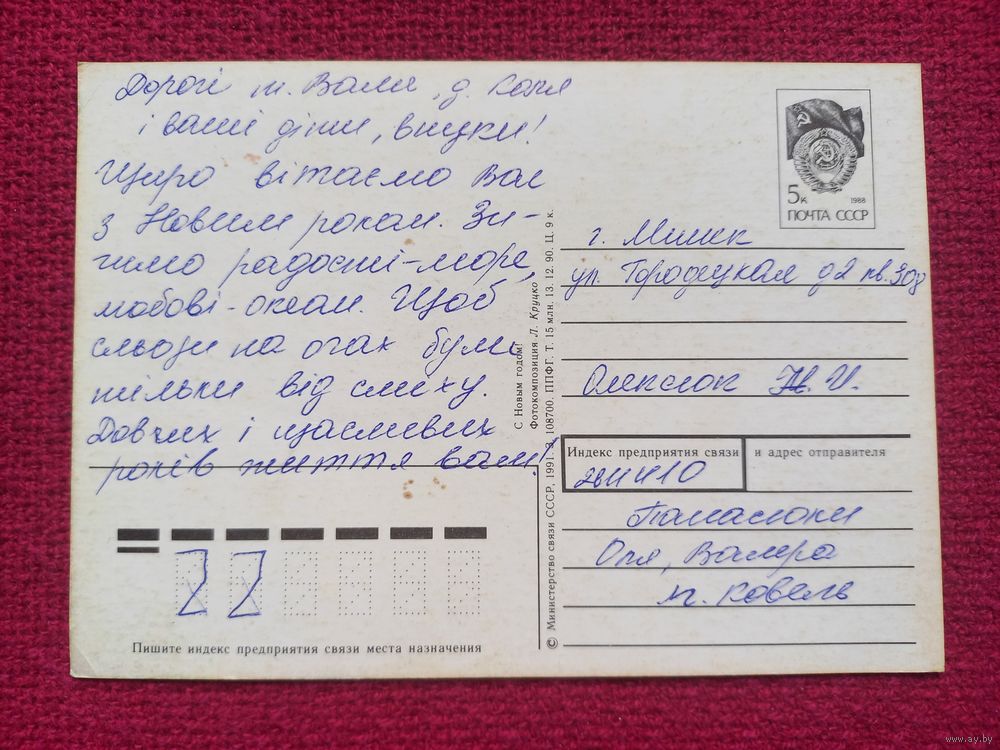 Дорогі т. Валя, д. Коля
і ваші діти, внуки!
Щиро вітаємо Вас
з Новим роком. Зи-
чимо радості-море,
любові-океан. Щоб
сльози на очах були
тільки від сміху.
Довгих і щасливих
років життя вам!
5к 1988
ПОЧТА СССР
г. Минск
ул. Городецкая д2 кв. 308
Олексюк Н. И.
Индекс предприятия связи и адрес отправителя
Панасюки
Оля, Валера
м. Ковель
С Новым годом!
Фотокомпозиция Л. Круцко
© Министерство связи СССР, 1991. З. 108700. ППФГ. Т. 15 млн. 13. 12. 90. Ц. 9 к.
22
Пишите индекс предприятия связи места назначения
www.ay.by